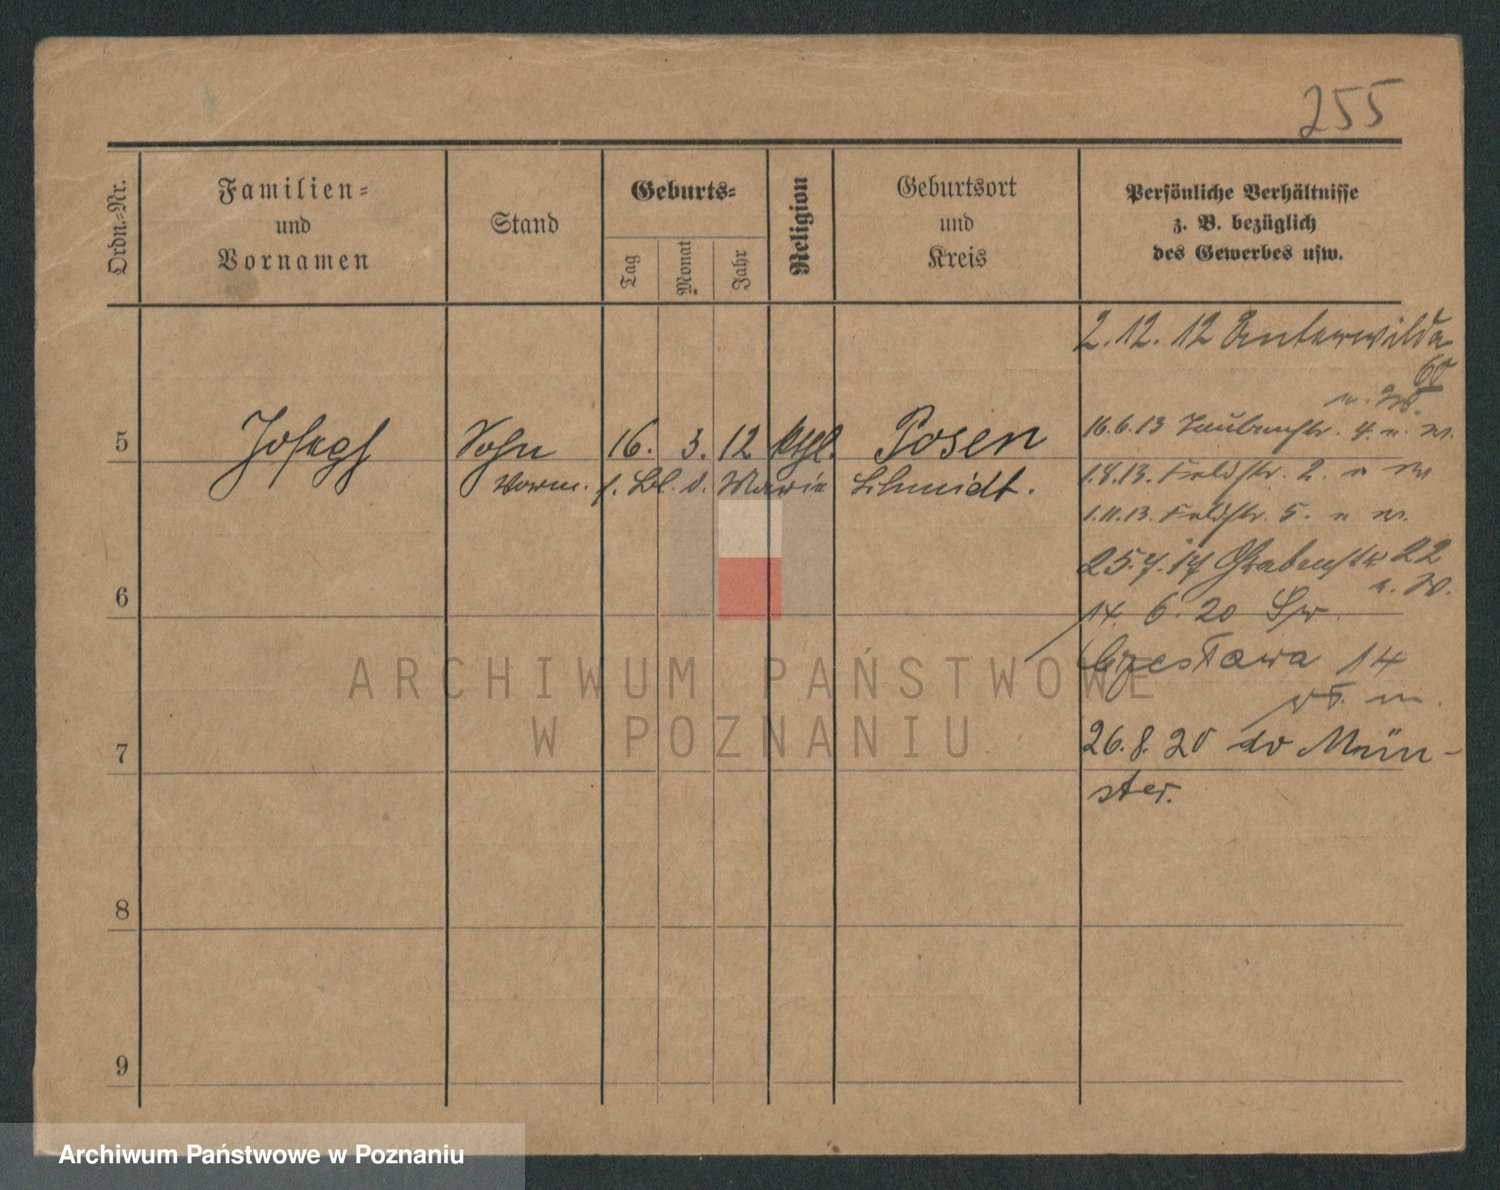 255
Ordn.-Nr.
Familien-
und
Vornamen
Stand
Geburts-
Tag
Monat
Jahr
Religion
Geburtsort
und
Kreis
Persönliche Verhältnisse
z. B. bezüglich
des Gewerbes usw.
2.12.12 Unterwilda
60
5
Joseph
Sohn
16. 3. 12 kthl.
Posen
16.6.13 Taubenstr. 4. u. W.
Vorm. f. Bl. d. Marie Schmidt.
1.8.13. Feldstr. 2. u W
1.11.13. Feldstr. 5. u W.
25.7.17 Grabenstr 22
u. W.
6
14. 6. 20 Św.
Czesława 14
wł. m.
7
26.8.20 do Mün-
ster.
8
9
ARCHIWUM PAŃSTWOWE
W POZNANIU
Archiwum Państwowe w Poznaniu